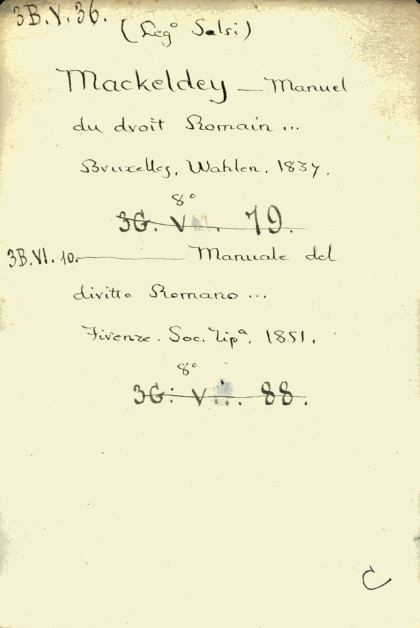 3B.V.36.
(Leg° Salsi)
Mackeldey — Manuel
du droit Romain ...
Bruxelles, Wahlen. 1837.
8°
3G. V . 79.
3B.VI.10. — Manuale del
diritto Romano ...
Firenze. Soc. Tipª. 1851.
8°
3G: V . 88.
C